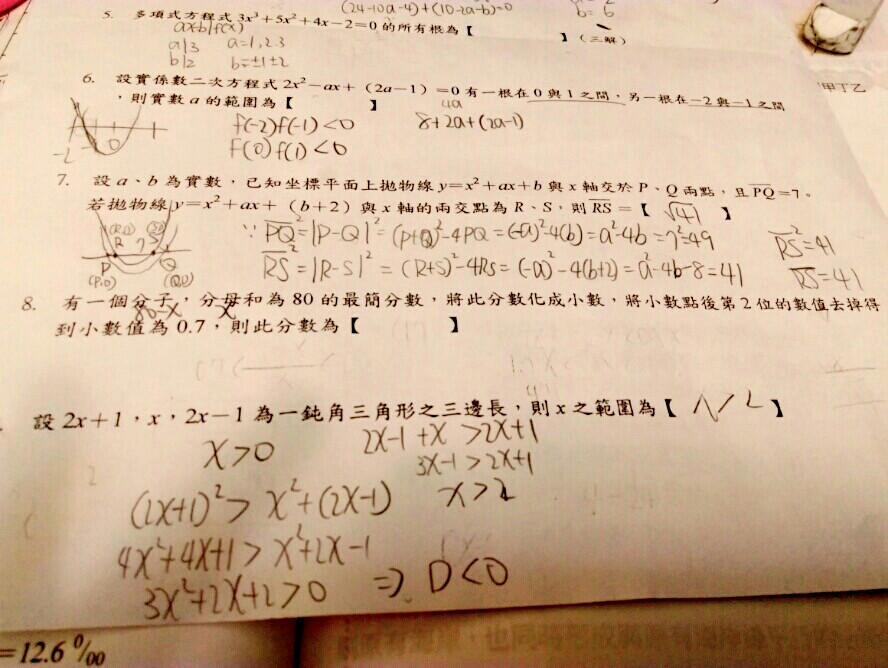 (24-10a-4)+(10-2a-b)=0
b=6
5. 多項式方程式 3x³+5x²+4x-2=0 的所有根為【 】(三解)
ax-b|f(x)
a|3 a=1,2.3
b|2 b=±1±2
甲丁乙
6. 設實係數二次方程式 2x²-ax+(2a-1)=0 有一根在 0 與 1 之間,另一根在 -2 與 -1 之間
,則實數 a 的範圍為【 】
f(-2)f(-1)<0 8+2a+(2a-1)
4a
f(0)f(1)<0
-2
7. 設 a、b 為實數,已知坐標平面上拋物線 y=x²+ax+b 與 x 軸交於 P、Q 兩點,且 PQ=7。
若拋物線 y=x²+ax+(b+2)與 x 軸的兩交點為 R、S,則 RS=【 √41 】
∵ PQ²=|P-Q|²=(P+Q)²-4PQ=(-a)²-4(b)=a²-4b=7²=49 RS²=41
RS=|R-S|²=(R+S)²-4RS=(-a)²-4(b+2)=a²-4b-8=41 RS=41
(R,0) (S,0)
R 7 S
P Q
(P,0) (Q,0)
8. 有一個分子,分母和為 80 的最簡分數,將此分數化成小數,將小數點後第 2 位的數值去掉得
80-x x
到小數值為 0.7,則此分數為【 】
設 2x+1,x,2x-1 為一鈍角三角形之三邊長,則 x 之範圍為【 】
x>0 2x-1+x>2x+1
3x-1>2x+1
(2x+1)²>x²+(2x-1) x>2
4x²+4x+1>x²+2x-1
3x²+2x+2>0 ⇒ D<0
=12.6 ‰